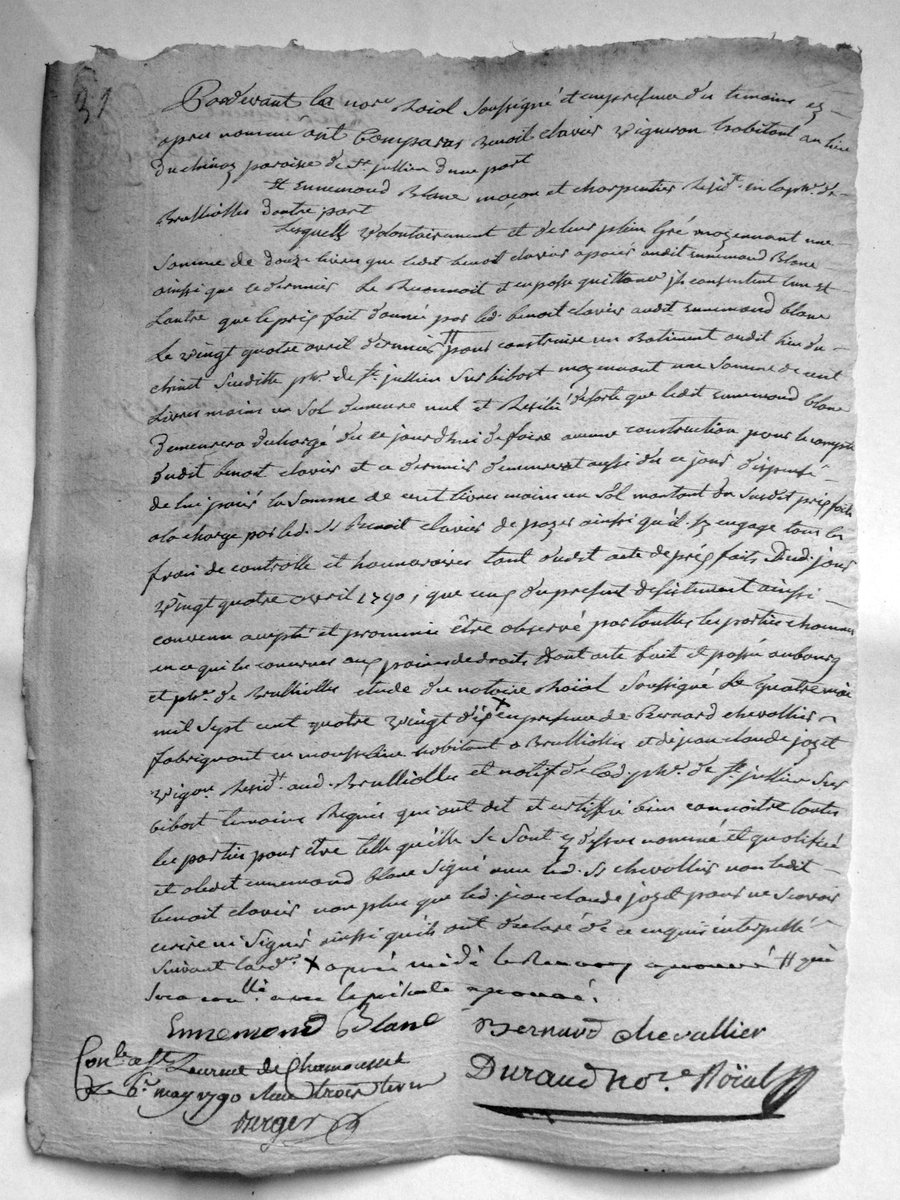 31
Pardevant le nore Roial Soussigné et en presence des temoins cy
apres nommé ont Comparus Benoit clavier vigneron habitant au lieu
du chinez paroisse de St jullien d'une part
Et Ennemond Blanc maçon et charpentier Residt. en la psse. de
Brulliolles d'autre part
Lesquells volontairement et de leur plein Gré moyennant une
Somme de douze livres que ledit benoit clavier a paier audit ennemond Blanc
ainsi que ce dernier Le Reconnoit et en passe quittance jls consentent l'un et
L'autre que le prix fait donnée par led. benoit clavier audit Ennemond blanc
Le vingt quatre avril dernier # pour construire un Batiment audit lieu du
chinet Susditte psse. de St jullien Sur bibost moyennant une Somme de cent
Livres moins un Sol demeure nul et Resilié de sorte que ledit ennemond blanc
Demeurera déchargé de ce jourd'hui de faire aucune construction pour le compte
dudit benoit clavier et ce dernier demeurera aussi de ce jour dispensé
de lui paiér la Somme de cent livres moins un Sol montant du Susdit prix faits
a la charge par led. Sr Benoit clavier de payer ainsi qu'il s'y engage tous les
frais de controlle et honnoraires tant dudit acte de prix faits Dud. jour
vingt quatre avril 1790, que ceux du present desistement ainsi
convenu accepté et promis être observé par touttes les parties chacune
en ce qui les concerne aux peines de droits Dont acte fait et passé au bourg
et psse. de Brulliolles etude du notaire Roïal Soussigné Le quatre mai
mil Sept cent quatre vingt dix X en presence de Bernard chevallier
fabriquant en mousseline habitant a Brulliolles et de jean claude jozet
vigon. Residt. aud. Brulliolles et natif de lad. psse. de St jullien Sur
bibost temoins Requis qui ont dit et certiffié bien connoitre touttes
les parties pour être telle qu'elle Se Sont cy dessus nommé et qualifiée
et a ledit ennemond blanc Signé avec led. Sr chevallier non ledit
benoit clavier non plus que led. jean claude jozet pour ne Scavoir
ecrire ni Signér ainsi qu'ils ont declaré de ce enquis interpellé
Suivant l'ordce. X après midi le Renvoy approuvé # qui
Sera collé. avec le présente approuvé.
Ennemond Blanc Bernard chevallier
Conlé a St Laurent de Chamousset
Le 6e. may 1790 Durand nore Roïal
Burger